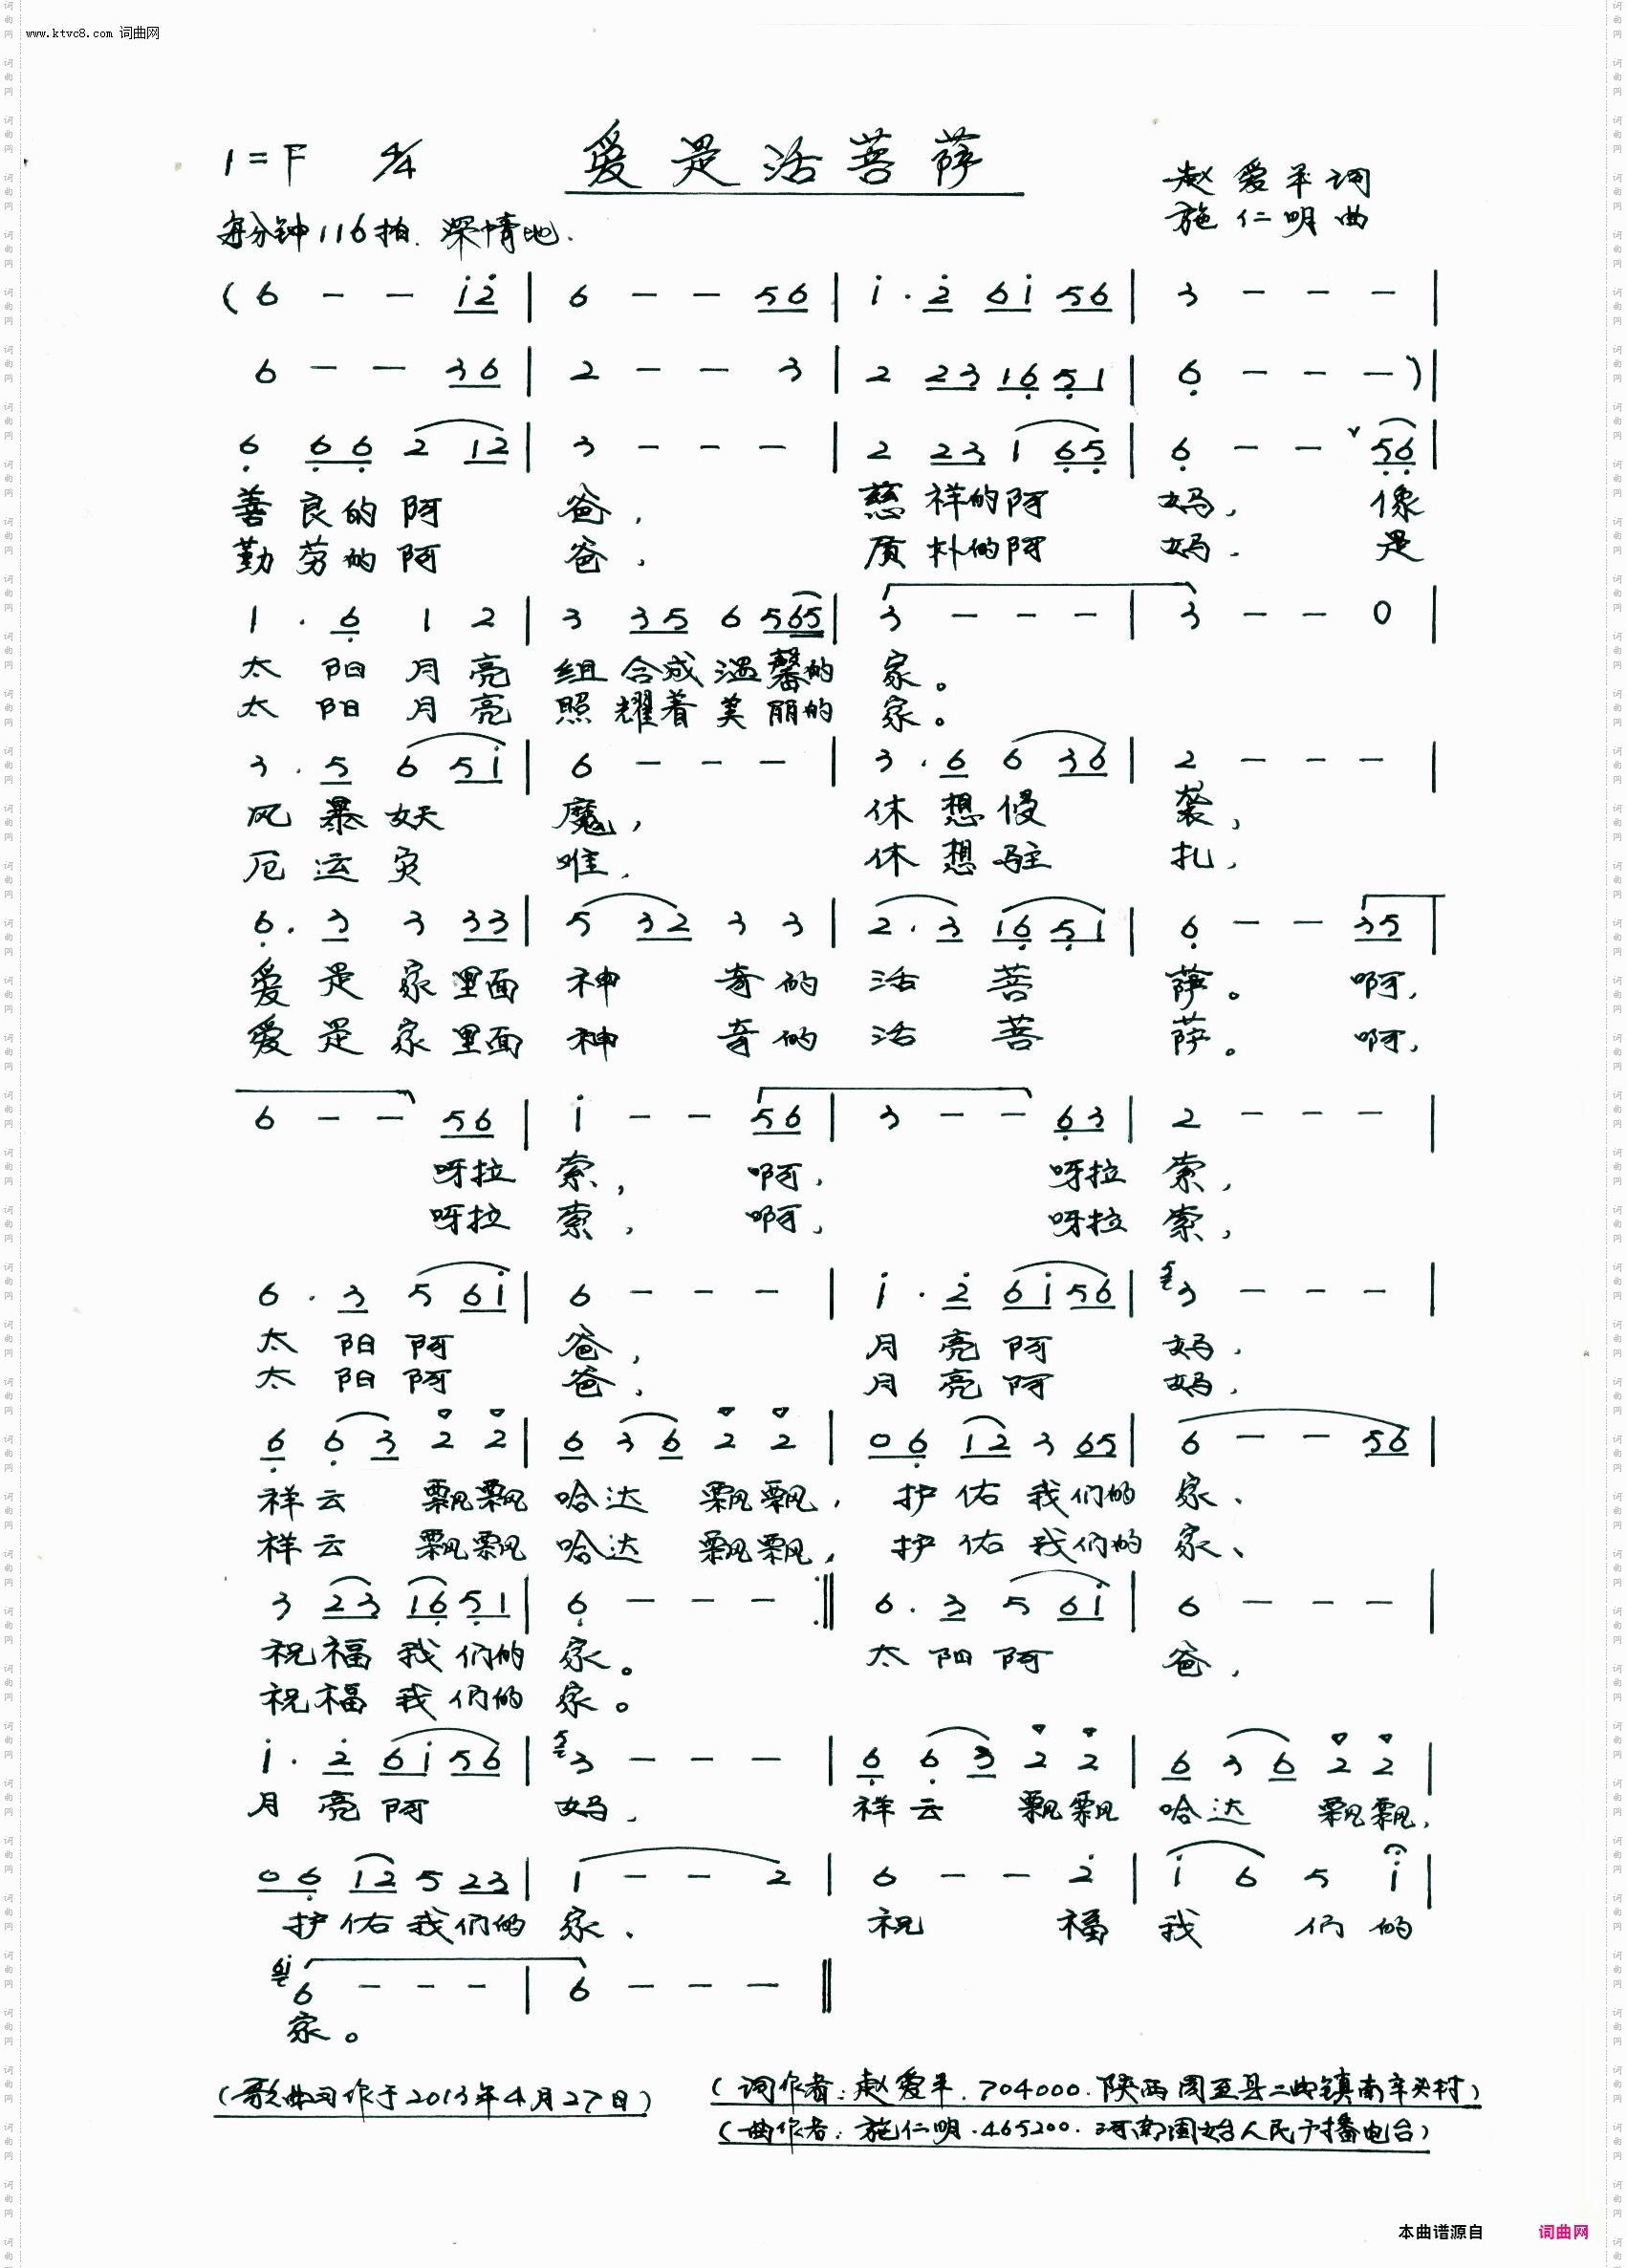 www.ktvc8.com 词曲网
1=F 4/4 爱是活菩萨
赵爱平词
施仁明曲
每分钟116拍. 深情地.
(6 - - i̲2̲̇ | 6 - - 5̲6̲ | i · 2̲̇ 6̲i̲ 5̲6̲ | 3 - - - |
6 - - 3̲6̲ | 2 - - 3 | 2 2̲3̲ 1̲6̲̣ 5̲̣1̲ | 6̣ - - -) |
6̣ 6̲̣6̲̣ 2 1̲2̲ | 3 - - - | 2 2̲3̲ 1 6̲̣5̲̣ | 6̣ - - ∨ 5̲̣6̲̣ |
善良的阿 爸, 慈祥的阿 妈, 像
勤劳的阿 爸, 质朴的阿 妈. 是
1 · 6̲̣ 1 2 | 3 3̲5̲ 6 5̲6̲5̲ | 3 - - - | 3 - - 0 |
太阳月亮 组合成温馨的 家。
太阳月亮 照耀着美丽的 家。
3 · 5̲ 6 5̲i̲ | 6 - - - | 3 · 6̲ 6 3̲6̲ | 2 - - - |
风暴妖 魔, 休想侵 袭,
厄运灾 难, 休想驻 扎,
6̣ · 3̲ 3 3̲3̲ | 5 3̲2̲ 3 3 | 2 · 3̲ 1̲6̲̣ 5̲̣1̲ | 6̣ - - 3̲5̲ |
爱是家里面 神奇的 活菩 萨。 啊,
爱是家里面 神奇的 活菩 萨。 啊,
6 - - 5̲6̲ | i - - 5̲6̲ | 3 - - 6̲̣3̲ | 2 - - - |
呀拉 索, 啊, 呀拉 索,
呀拉 索, 啊, 呀拉 索,
6 · 3̲ 5 6̲i̲ | 6 - - - | i · 2̲̇ 6̲i̲ 5̲6̲ | ⁵3 - - - |
太阳阿 爸, 月亮阿 妈,
太阳阿 爸, 月亮阿 妈,
6̲̣ 6̣ 3̲ 2 2 | 6̲ 3 6̲ 2 2 | 0̲6̲̣ 1̲2̲ 3 6̲5̲ | 6 - - 5̲6̲ |
祥云 飘飘 哈达 飘飘, 护佑我们的 家、
祥云 飘飘 哈达 飘飘, 护佑我们的 家、
3 2̲3̲ 1̲6̲̣ 5̲̣1̲ | 6̣ - - - :‖ 6 · 3̲ 5 6̲i̲ | 6 - - - |
祝福我们的 家。 太阳阿 爸,
祝福我们的 家。
i · 2̲̇ 6̲i̲ 5̲6̲ | ⁵3 - - - | 6̲̣ 6̣ 3̲ 2 2 | 6̲ 3 6̲ 2 2 |
月亮阿 妈, 祥云 飘飘 哈达 飘飘,
0̲6̲̣ 1̲2̲ 5 2̲3̲ | 1 - - 2 | 6 - - 2̇ | i 6 5 i |
护佑我们的 家、 祝 福 我 们的
⁶ⁱ6 - - - | 6 - - - ‖
家。
(歌曲习作于2013年4月27日)
(词作者:赵爱平.704000.陕西周至县二曲镇南辛头村)
(曲作者:施仁明.465200.河南固始人民广播电台)
本曲谱源自 词曲网